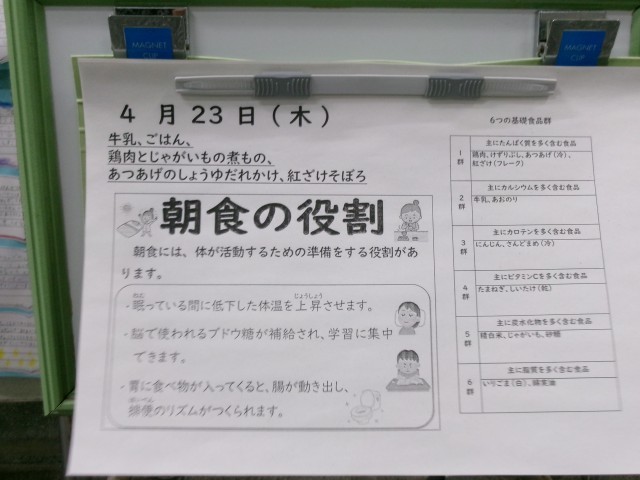 MAGNET
CLIP
MAGNET
CLIP
4 月 23 日 (木)
牛乳、ごはん、
鶏肉とじゃがいもの煮もの、
あつあげのしょうゆだれかけ、紅ざけそぼろ
朝食の役割
朝食には、体が活動するための準備をする役割があ
ります。
・眠っている間に低下した体温を上昇させます。
・脳で使われるブドウ糖が補給され、学習に集中
できます。
・胃に食べ物が入ってくると、腸が動き出し、
排便のリズムがつくられます。
6つの基礎食品群
1群
主にたんぱく質を多く含む食品
鶏肉、けずりぶし、あつあげ(冷)、
紅ざけ(フレーク)
2群
主にカルシウムを多く含む食品
牛乳、あおのり
3群
主にカロテンを多く含む食品
にんじん、さんどまめ(冷)
4群
主にビタミンCを多く含む食品
たまねぎ、しいたけ(乾)
5群
主に炭水化物を多く含む食品
精白米、じゃがいも、砂糖
6群
主に脂質を多く含む食品
いりごま(白)、綿実油